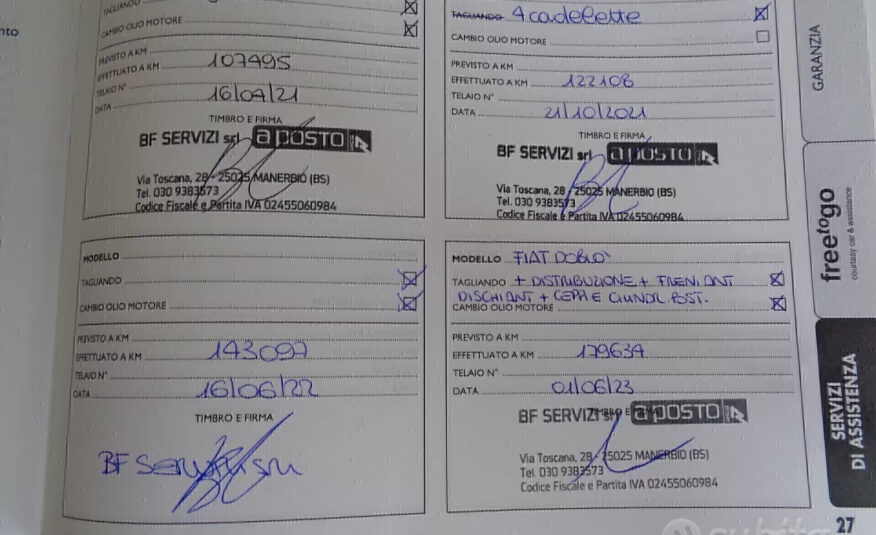 nto
TAGLIANDO
CAMBIO OLIO MOTORE
PREVISTO A KM
EFFETTUATO A KM 107495
TELAIO N°
DATA 16/04/21
TIMBRO E FIRMA
BF SERVIZI srl a posto
Via Toscana, 28 - 25025 MANERBIO (BS)
Tel. 030 9383573
Codice Fiscale e Partita IVA 02455060984
TAGLIANDO 4 candelette
CAMBIO OLIO MOTORE
PREVISTO A KM
EFFETTUATO A KM 122108
TELAIO N°
DATA 21/10/2021
TIMBRO E FIRMA
BF SERVIZI srl a posto
Via Toscana, 28 - 25025 MANERBIO (BS)
Tel. 030 9383573
Codice Fiscale e Partita IVA 02455060984
MODELLO
TAGLIANDO
CAMBIO OLIO MOTORE
PREVISTO A KM
EFFETTUATO A KM 143097
TELAIO N°
DATA 16/06/22
TIMBRO E FIRMA
BF SERVIZI SRL
MODELLO FIAT DOBLO'
TAGLIANDO + DISTRIBUZIONE + FRENI ANT
DISCHI ANT + CEPPI E CILINDR. POST.
CAMBIO OLIO MOTORE
PREVISTO A KM
EFFETTUATO A KM 179634
TELAIO N°
DATA 01/06/23
TIMBRO E FIRMA
BF SERVIZI srl a posto
Via Toscana, 28 - 25025 MANERBIO (BS)
Tel. 030 9383573
Codice Fiscale e Partita IVA 02455060984
GARANZIA
free to go
courtesy car & assistance
SERVIZI
DI ASSISTENZA
27
subito